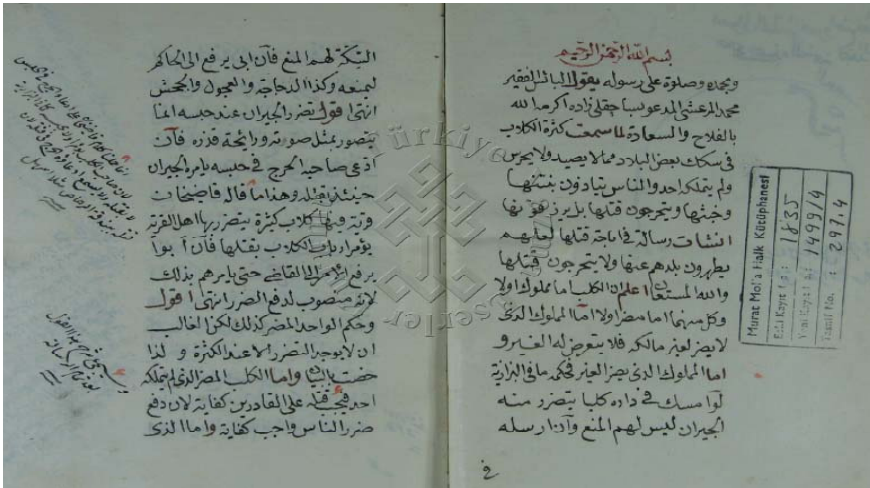 بسم الله الرحمن الرحيم
وبحمده وصلوة على رسوله يقول البائس الفقير
محمد المرعشي المدعو بساچقلي زاده اكرمه الله
بالفلاح والسعادة لما سمعت كثرة الكلاب
في سكك بعض البلاد مما لا يصيد ولا يحرس
ولم يتملكه احد والناس يتأذون بنتنها
وخبثها ويتحرجون قتلها بل يرزقونها
انشأت رسالة في اباحة قتلها لعلهم
يطهرون بلدهم عنها ولا يتحرجون قتلها
والله المستعان اعلم ان الكلب اما مملوك اولا
وكل منهما اما مضر اولا اما المملوك الذي
لا يضر لغير مالكه فلا يتعرض له الغير و
اما المملوك الذي يضر الغير فحكمه ما في البزازية
لو امسك في داره كلبا يتضرر منه
الجيران ليس لهم المنع وان ارسله
في
السكة لهم المنع فان ابى يرفع الى الحاكم
ليمنعه وكذا الدجاجة والعجول والجحش
انتهى اقول تضرر الجيران عند حبسه انما
يتصور بمثل صوته ورايحة قذره فان
ادعى صاحبه الحرج في حبسه يأمر الجيران
حينئذ قتله وهذا ما قاله قاضيخان
قرية فيها كلاب كثيرة يتضرر بها اهل القرية
يؤمر ارباب الكلاب بقتلها فان أبوا
يرفع الامر الى القاضي حتى يأمرهم بذلك
لانه منصوب لدفع الضرر انتهى اقول
وحكم الواحد المضر كذلك لكن الغالب
ان لا يوجد التضرر الا عند الكثرة ولذا
خصت بالبيان واما الكلب المضر الذي لم يتملكه
احد فيجب قتله على القادرين كفاية لان دفع
ضرر الناس واجب كفاية واما الذي
Murat Molla Halk Kütüphanesi
Eski Kayıt No: 1835
Yeni Kayıt No: 1499/4
Tasnif No: 297.4
Türkiye